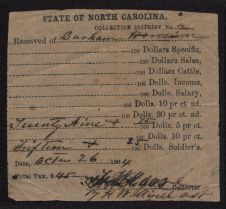 STATE OF NORTH CAROLINA,
COLLECTION DISTRICT No.
Received of Durham Harrison
100 Dollars Specific,
100 Dollars Sales,
100 Dollars Cattle,
100 Dolls. Income,
100 Dolls. Salary,
100 Dolls. 10 pr ct.
100 Dolls. 30 pr ct. ad
Twenty Nine & 100 Dolls. 5 pr ct.
100 Dolls. 10 pr ct.
Sixteen & 100 Dolls. Soldier's.
Date, Octr 26 1864
Total Tax, $45
Collector